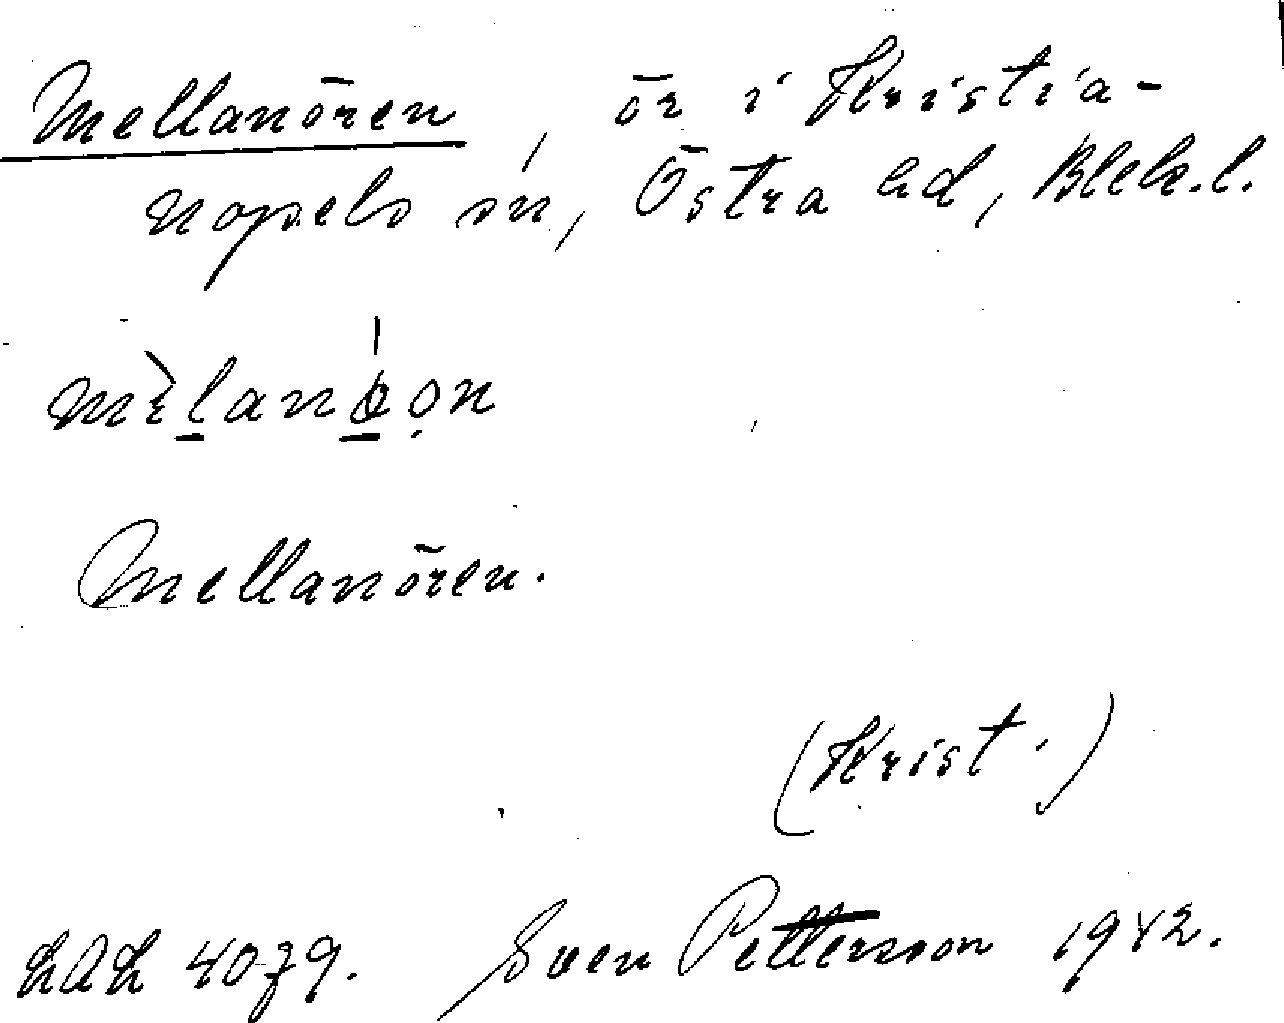 Mellanören, ör i Kristia-
nopels sn, Östra hd, Blek. l.
Mellanören.
(Krist.)
LAL 4079. Sven Pettersson 1942.